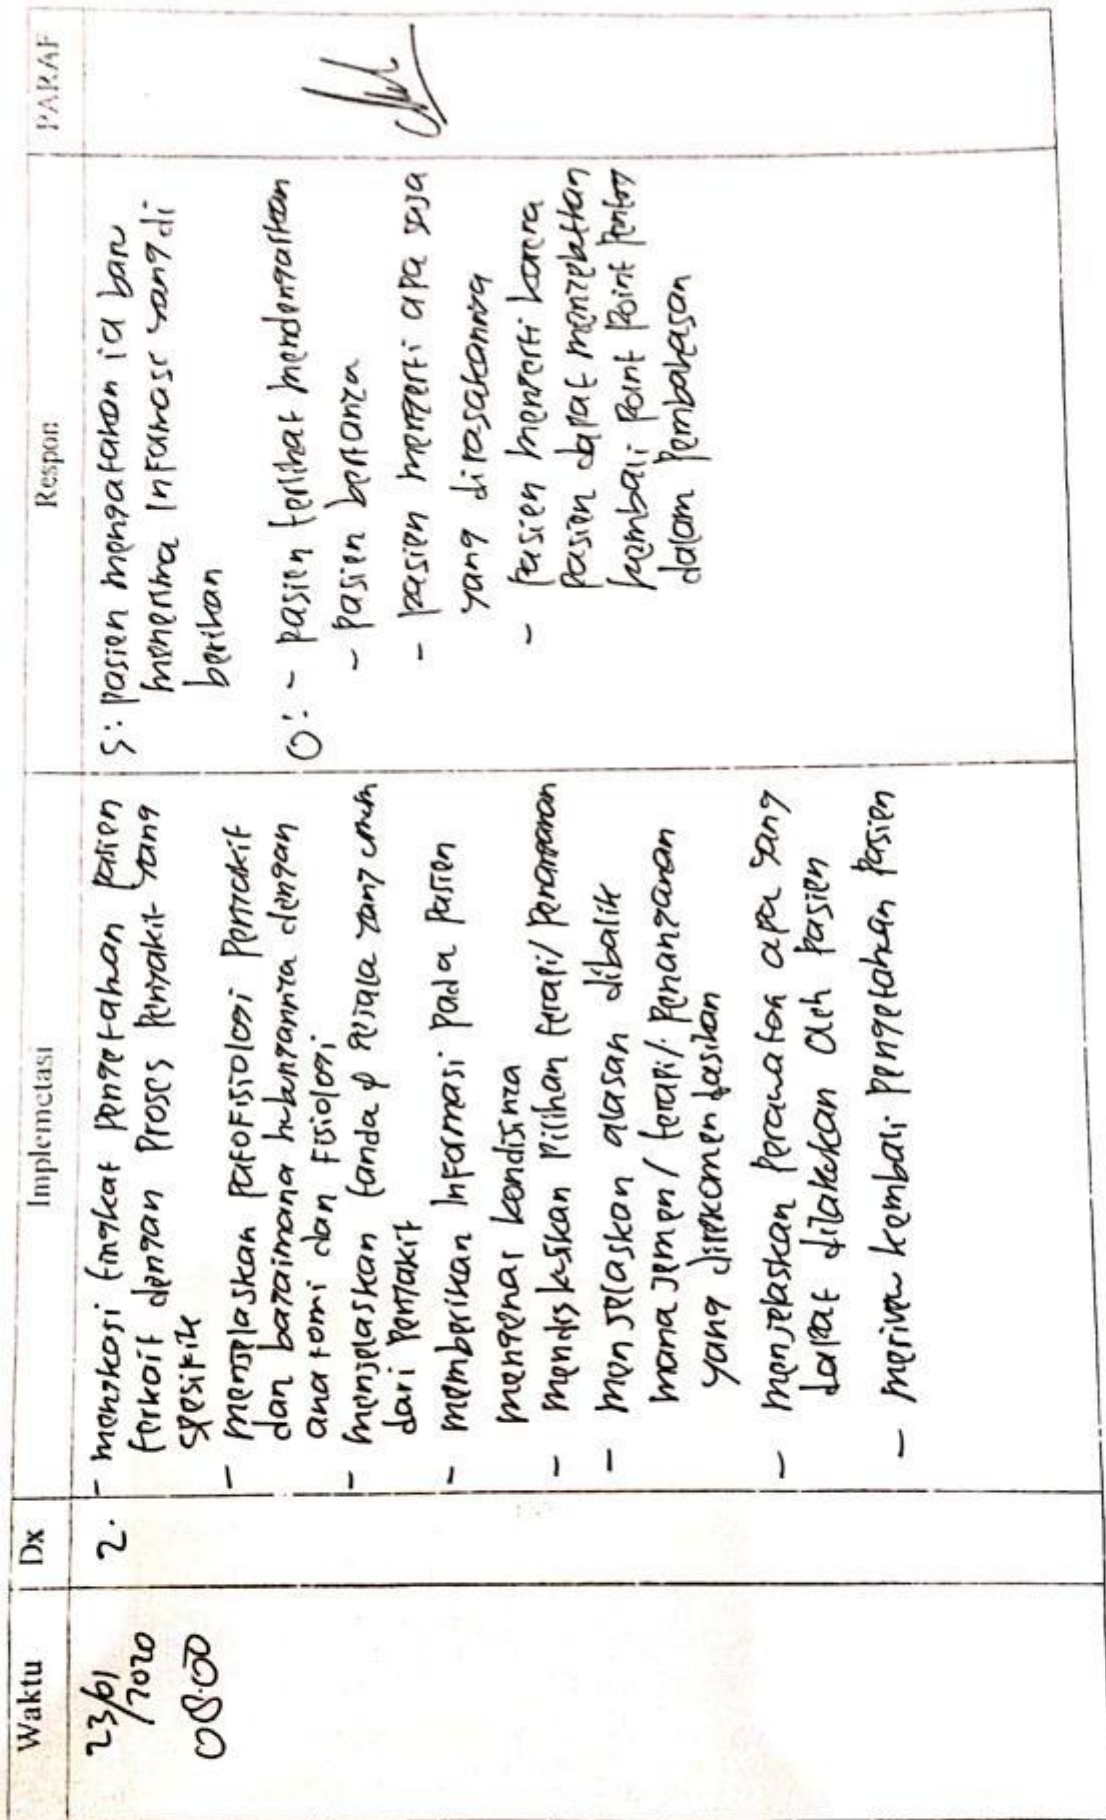 Waktu
Dx
Implemetasi
Respon
PARAF
23/01
/2020
08.00
2.
- mengkaji tingkat pengetahuan pasien
terkait dengan proses penyakit yang
spesifik
- menjelaskan patofisiologi penyakit
dan bagaimana hubungannya dengan
anatomi dan fisiologi
- menjelaskan tanda & gejala yang umum
dari penyakit
- memberikan informasi pada pasien
mengenai kondisinya
- mendiskusikan pilihan terapi/ penanganan
- menjelaskan alasan dibalik
manajemen/ terapi/ penanganan
yang direkomendasikan
- menjelaskan perawatan apa yang
dapat dilakukan oleh pasien
- meriview kembali pengetahuan pasien
S: pasien mengatakan ia baru
menerima informasi yang di
berikan
O: - pasien terlihat mendengarkan
- pasien bertanya
- pasien mengerti apa saja
yang dirasakannya
- pasien mengerti karena
pasien dapat menyebutkan
kembali point point penting
dalam pembahasan